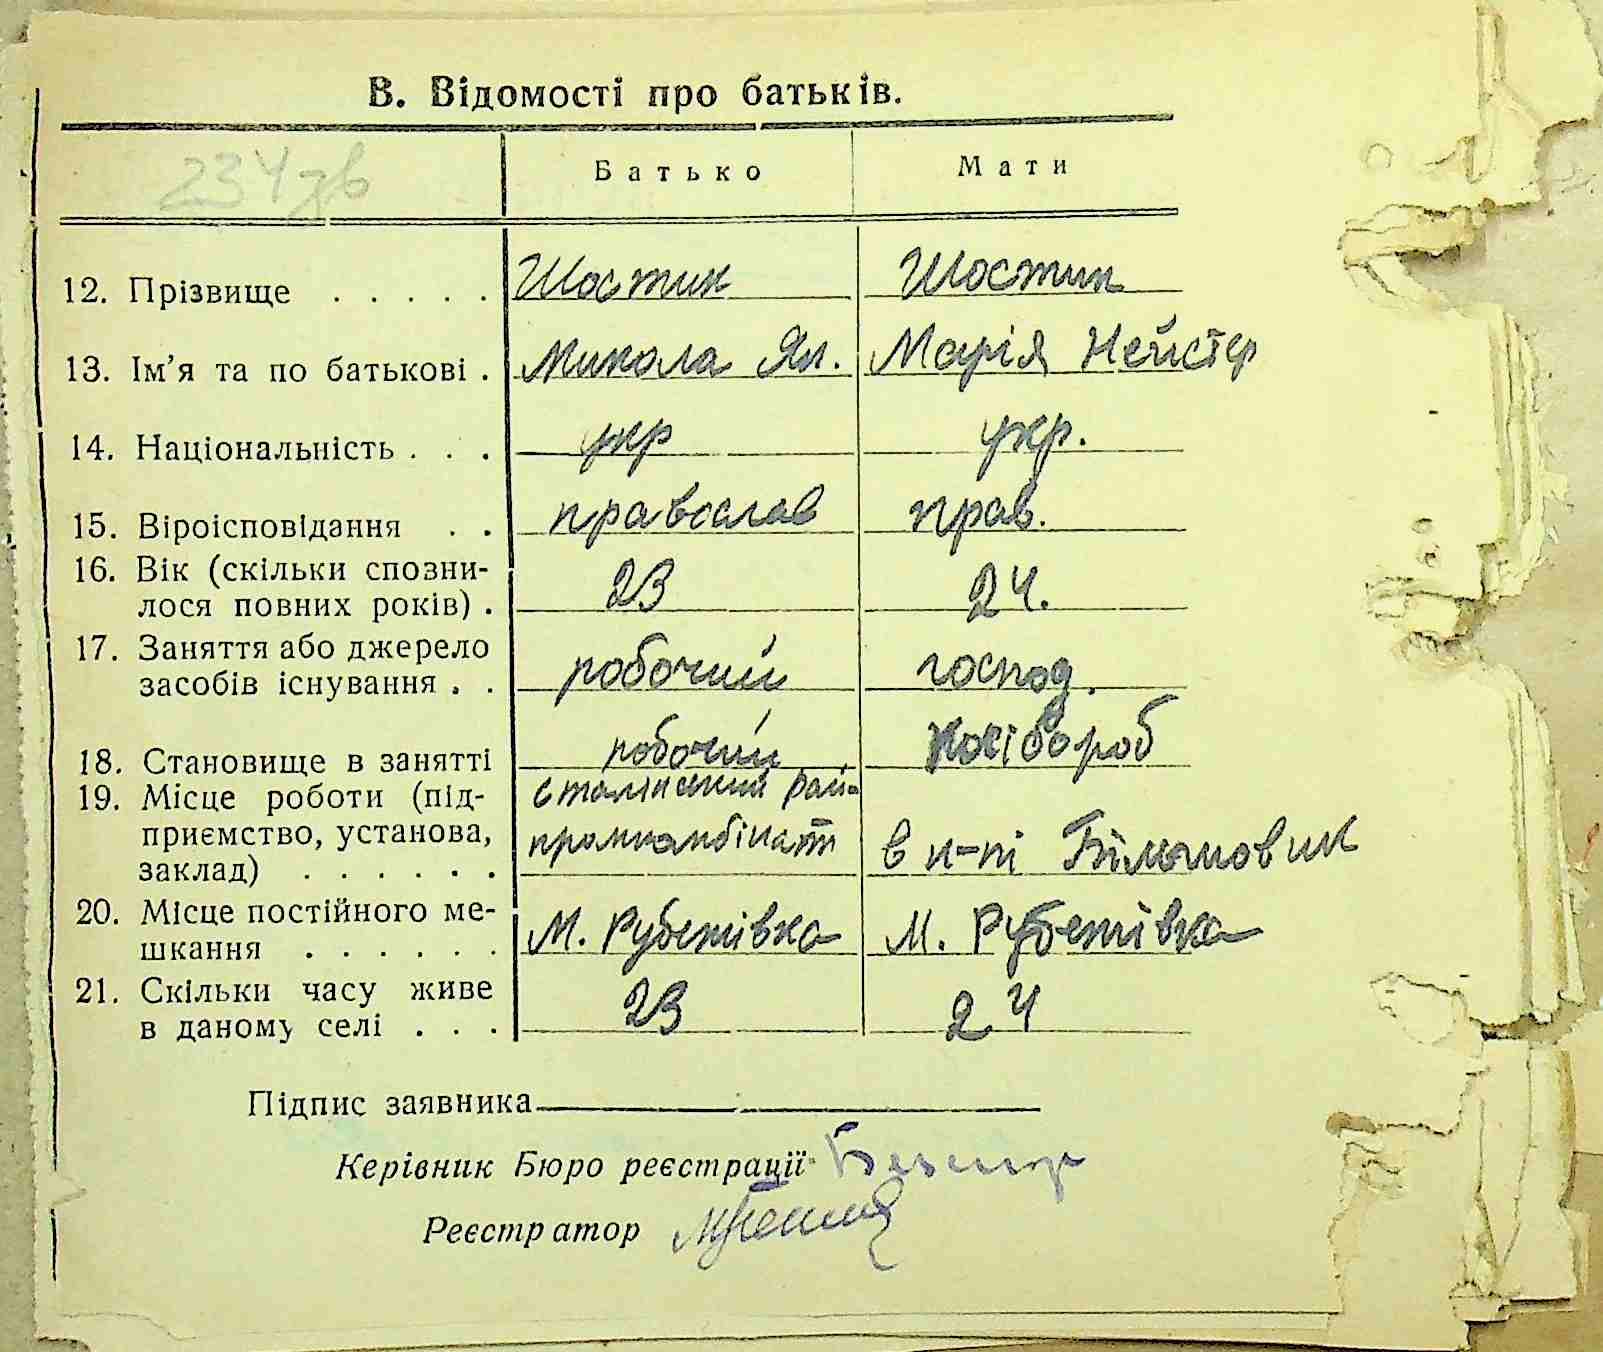 В. Відомості про батьків.
234 зв
Батько Мати
12. Прізвище . . . . . Шостик Шостик
13. Ім'я та по батькові . Микола Як. Марія Нейстер
14. Національність . . . укр укр.
15. Віроісповідання . . православ прав.
16. Вік (скільки спозни-
лося повних років) . 23 24.
17. Заняття або джерело
засобів існування . . робочий господ.
18. Становище в занятті робочий
19. Місце роботи (під- сталінський рай-
приємство, установа, промкомбінат
заклад) . . . . . . в
20. Місце постійного ме- М. Рубетівка М. Рубетівка
шкання . . . . . .
21. Скільки часу живе 23 24
в даному селі . . .
Підпис заявника
Керівник Бюро реєстрації
Реєстратор